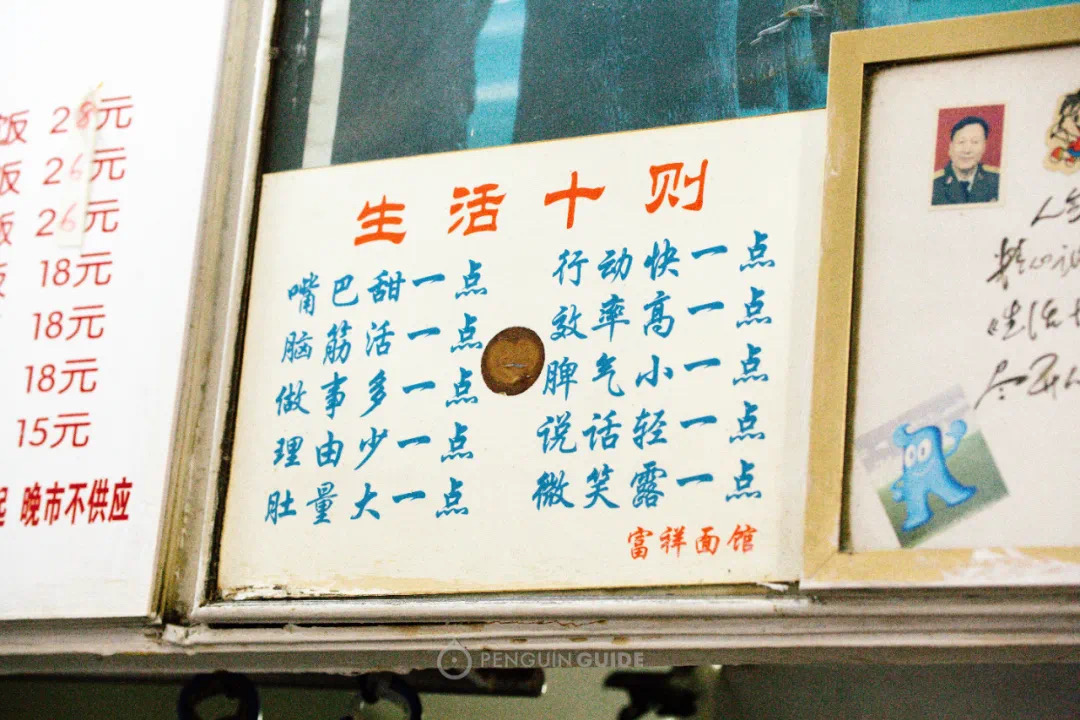 饭 28元
饭 26元
饭 26元
18元
18元
18元
15元
起 晚市不供应
生活十则
嘴巴甜一点
脑筋活一点
做事多一点
理由少一点
肚量大一点
行动快一点
效率高一点
脾气小一点
说话轻一点
微笑露一点
富祥面馆
PENGUIN GUIDE